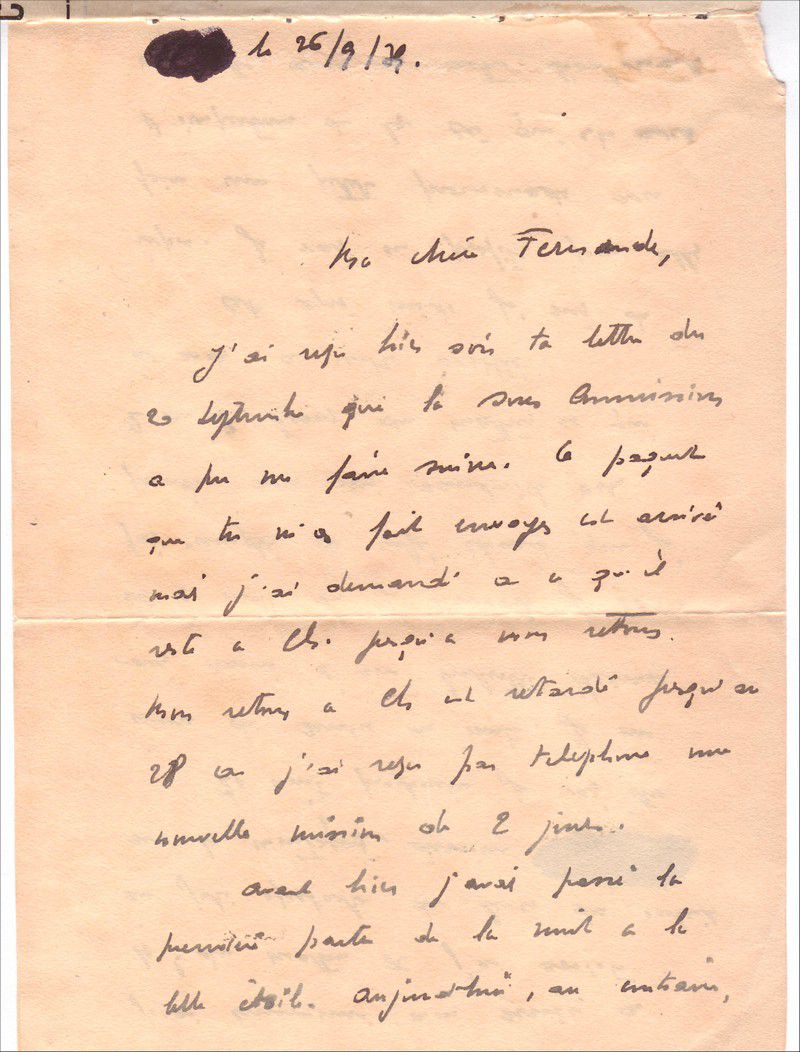 le 26/9/39.
Ma chère Fernande,
J'ai reçu hier soir ta lettre du
20 septembre que la sous Commission
a pu me faire suivre. Le paquet
que tu m'as fait envoyer est arrivé
mais j'ai demandé a a qu'il
reste a Ch. jusqu'a mon retour.
Mon retour a Ch est retardé jusqu'au
28 car j'ai reçu par téléphone une
nouvelle mission de 2 jours.
Avant hier j'avais passé la
première partie de la nuit a la
belle étoile. Aujourd'hui, au contraire,